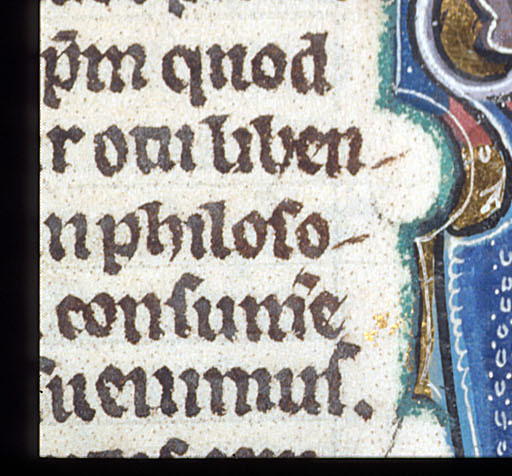 p̄m quod
r otii liben
n philoſo
conſumē
ſueuimuſ.